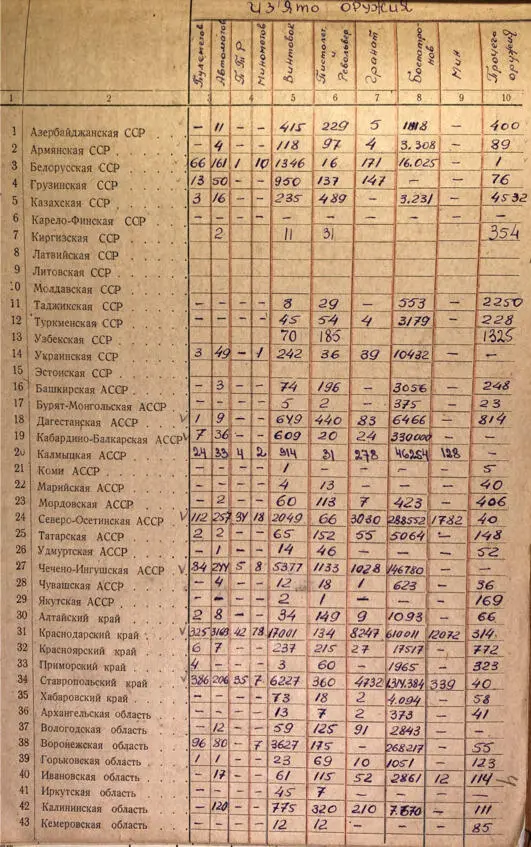 Изъято оружия
Пулеметов Автоматов ПТР Минометов Винтовок Пистолет. и Револьвер Гранат Боепатронов Мин Прочего оружия
1 2 3 4 5 6 7 8 9 10
1 Азербайджанская ССР — 11 — — 415 229 5 1818 — 400
2 Армянская ССР — 4 — — 118 97 4 3.308 — 89
3 Белорусская ССР 66 161 1 10 1346 16 171 16.025 — 1
4 Грузинская ССР 13 50 — — 950 137 147 — — 76
5 Казахская ССР 3 16 — — 235 489 — 3.231 — 4532
6 Карело-Финская ССР — — — — — — — — — —
7 Киргизская ССР 2 11 31 354
8 Латвийская ССР
9 Литовская ССР
10 Молдавская ССР
11 Таджикская ССР — — — — 8 29 — 553 — 2250
12 Туркменская ССР — — — — 45 54 4 3179 — 228
13 Узбекская ССР 70 185 1325
14 Украинская ССР 3 49 — 1 242 36 39 10432 — —
15 Эстонская ССР
16 Башкирская АССР — 3 — — 74 196 — 3056 — 248
17 Бурят-Монгольская АССР — — — — 5 2 — 375 — 23
18 Дагестанская АССР 1 9 — — 649 440 83 6466 — 814
19 Кабардино-Балкарская АССР 7 36 — — 609 20 24 330000 — —
20 Калмыцкая АССР 24 33 4 2 914 31 278 46254 128 —
21 Коми АССР — — — — 1 — — — — 5
22 Марийская АССР — — — — 4 13 — — — 40
23 Мордовская АССР — 2 — — 60 113 7 423 — 406
24 Северо-Осетинская АССР 112 257 34 18 2049 66 3030 288552 1782 40
25 Татарская АССР 2 2 — — 65 152 55 5064 — 148
26 Удмуртская АССР — 1 — — 14 46 — — — 52
27 Чечено-Ингушская АССР 84 244 5 8 5377 1133 1028 146780 — —
28 Чувашская АССР — 4 — — 12 18 1 623 — 36
29 Якутская АССР — — — — 2 1 — — — 169
30 Алтайский край 2 8 — — 34 149 9 1093 — 66
31 Краснодарский край 325 3169 42 78 17001 134 8247 610011 12072 314
32 Красноярский край 6 7 — — 237 215 27 17517 — 772
33 Приморский край 4 — — — 3 60 — 1965 — 323
34 Ставропольский край 386 206 35 7 6227 360 4732 1314.384 339 40
35 Хабаровский край — — — — 73 18 2 4.094 — 58
36 Архангельская область — — — — 13 7 2 373 — 41
37 Вологодская область — 12 — — 59 125 91 2843 — —
38 Воронежская область 96 80 — 7 3627 175 — 268217 — 55
39 Горьковская область 1 1 — — 23 69 10 1051 — 123
40 Ивановская область — 17 — — 61 115 52 2861 12 114
41 Иркутская область — — — — 45 7 — — — —
42 Калининская область — 120 — — 775 320 210 7.670 — 111
43 Кемеровская область — — — — 12 12 — — — 85